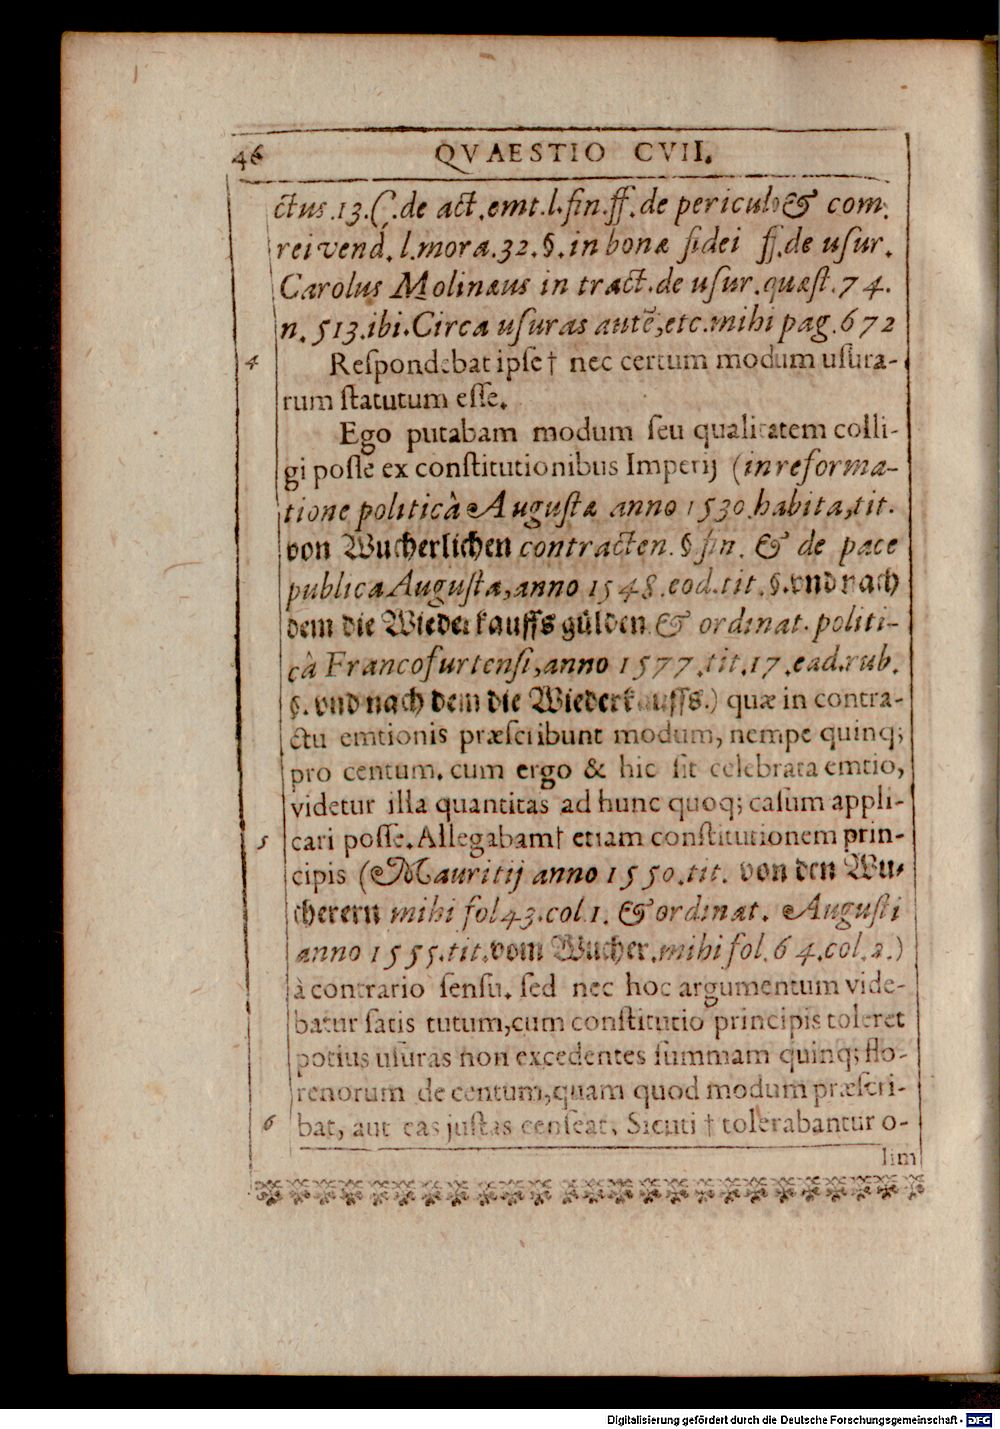 46 QVAESTIO CVII.
ctus.13.C.de act.emt.l.fin.ff.de periculo & com.
rei vend. l.mora.32.§.in bonæ fidei ff.de uſur.
Carolus Molinæus in tract.de uſur.quæſt.74.
n. 513.ibi.Circa uſuras autē,etc.mihi pag.672
4 Reſpondebat ipſe† nec certum modum uſura-
rum ſtatutum eſſe.
Ego putabam modum ſeu qualitatem colli-
gi poſſe ex conſtitutionibus Imperij (in reforma-
tione politicâ Auguſtæ anno 1530.habita,tit.
von Wucherlichen contracten.§ fin. & de pace
publica Auguſta,anno 1548.eod.tit.§.vnd nach
dem die Wiederkauffs gülden & ordinat.politi-
câ Francofurtenſi,anno 1577.tit.17.ead.rub.
§.vnd nach dem die Wiederkauffs.) quæ in contra-
ctu emtionis præſcribunt modum, nempe quinq;
pro centum. cum ergo & hic ſit celebrata emtio,
videtur illa quantitas ad hunc quoq; caſum appli-
5 cari poſſe. Allegabam† etiam conſtitutionem prin-
cipis (Mauritij anno 1550.tit. von den Wu-
cherern mihi fol 43.col 1. & ordinat. Auguſti
anno 1555.tit.vom Wucher.mihi fol.64.col.2.)
à contrario ſenſu. ſed nec hoc argumentum vide-
batur ſatis tutum,cum conſtitutio principis toleret
potius uſuras non excedentes ſummam quinq; flo-
renorum de centum,quam quod modum præſcri-
6 bat, aut eas juſtas cenſeat. Sicuti † tolerabantur o-
lim
Digitalisierung gefördert durch die Deutsche Forschungsgemeinschaft - DFG